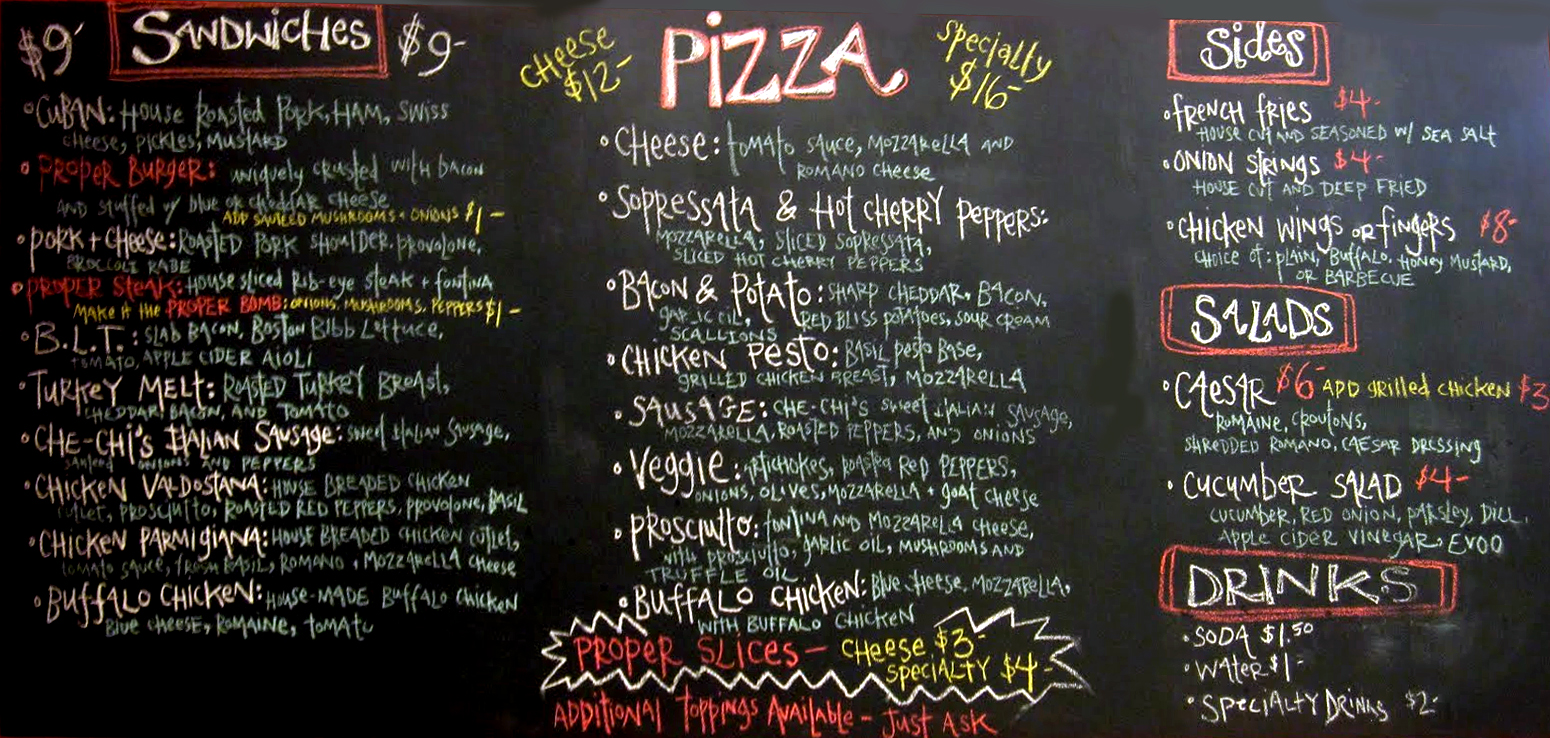 $9- SANDWICHES $9-
• CUBAN: HOUSE ROASTED PORK, HAM, SWISS
CHEESE, PICKLES, MUSTARD
• PROPER BURGER: UNIQUELY CRUSTED WITH BACON
AND STUFFED W/ BLUE OR CHEDDAR CHEESE
ADD SAUTEED MUSHROOMS + ONIONS $1-
• PORK + CHEESE: ROASTED PORK SHOULDER, PROVOLONE,
BROCCOLI RABE
• PROPER STEAK: HOUSE SLICED RIB-EYE STEAK + FONTINA
MAKE IT THE PROPER BOMB: ONIONS, MUSHROOMS, PEPPERS $1-
• B.L.T.: SLAB BACON, BOSTON BIBB LETTUCE,
TOMATO, APPLE CIDER AIOLI
• TURKEY MELT: ROASTED TURKEY BREAST,
CHEDDAR, BACON, AND TOMATO
• CHE-CHI'S ITALIAN SAUSAGE: SWEET ITALIAN SAUSAGE,
ONIONS AND PEPPERS
• CHICKEN VALDOSTANA: HOUSE BREADED CHICKEN
CUTLET, PROSCIUTTO, ROASTED RED PEPPERS, PROVOLONE, BASIL
• CHICKEN PARMIGIANA: HOUSE BREADED CHICKEN CUTLET,
TOMATO SAUCE, FRESH BASIL, ROMANO + MOZZARELLA CHEESE
• BUFFALO CHICKEN: HOUSE-MADE BUFFALO CHICKEN
BLUE CHEESE, ROMAINE, TOMATO
CHEESE $12- PIZZA SPECIALTY $16-
• CHEESE: TOMATO SAUCE, MOZZARELLA AND
ROMANO CHEESE
• SOPRESSATA & HOT CHERRY PEPPERS:
MOZZARELLA, SLICED SOPRESSATA,
SLICED HOT CHERRY PEPPERS
• BACON & POTATO: SHARP CHEDDAR, BACON,
GARLIC OIL, RED BLISS POTATOES, SOUR CREAM
SCALLIONS
• CHICKEN PESTO: BASIL PESTO BASE,
GRILLED CHICKEN BREAST, MOZZARELLA
• SAUSAGE: CHE-CHI'S SWEET ITALIAN SAUSAGE,
MOZZARELLA, ROASTED PEPPERS, AND ONIONS
• VEGGIE: ARTICHOKES, ROASTED RED PEPPERS,
ONIONS, OLIVES, MOZZARELLA + GOAT CHEESE
• PROSCIUTTO: FONTINA AND MOZZARELLA CHEESE,
WITH PROSCIUTTO, GARLIC OIL, MUSHROOMS AND
TRUFFLE OIL
• BUFFALO CHICKEN: BLUE CHEESE, MOZZARELLA,
WITH BUFFALO CHICKEN
PROPER SLICES - CHEESE $3-
SPECIALTY $4-
ADDITIONAL TOPPINGS AVAILABLE - JUST ASK
SIDES
• FRENCH FRIES $4-
HOUSE CUT AND SEASONED W/ SEA SALT
• ONION STRINGS $4-
HOUSE CUT AND DEEP FRIED
• CHICKEN WINGS OR FINGERS $8-
CHOICE OF: PLAIN, BUFFALO, HONEY MUSTARD,
OR BARBECUE
SALADS
• CAESAR $6- ADD GRILLED CHICKEN $3
ROMAINE, CROUTONS,
SHREDDED ROMANO, CAESAR DRESSING
• CUCUMBER SALAD $4-
CUCUMBER, RED ONION, PARSLEY, DILL,
APPLE CIDER VINEGAR, EVOO
DRINKS
• SODA $1.50
• WATER $1-
• SPECIALTY DRINKS $2-